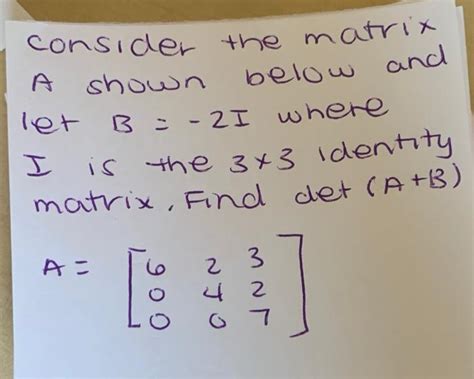 consider the matrix
A shown below and
let B = -2I where
I is the 3x3 identity
matrix. Find det (A+B)
A = [6 2 3
0 4 2
0 0 7]